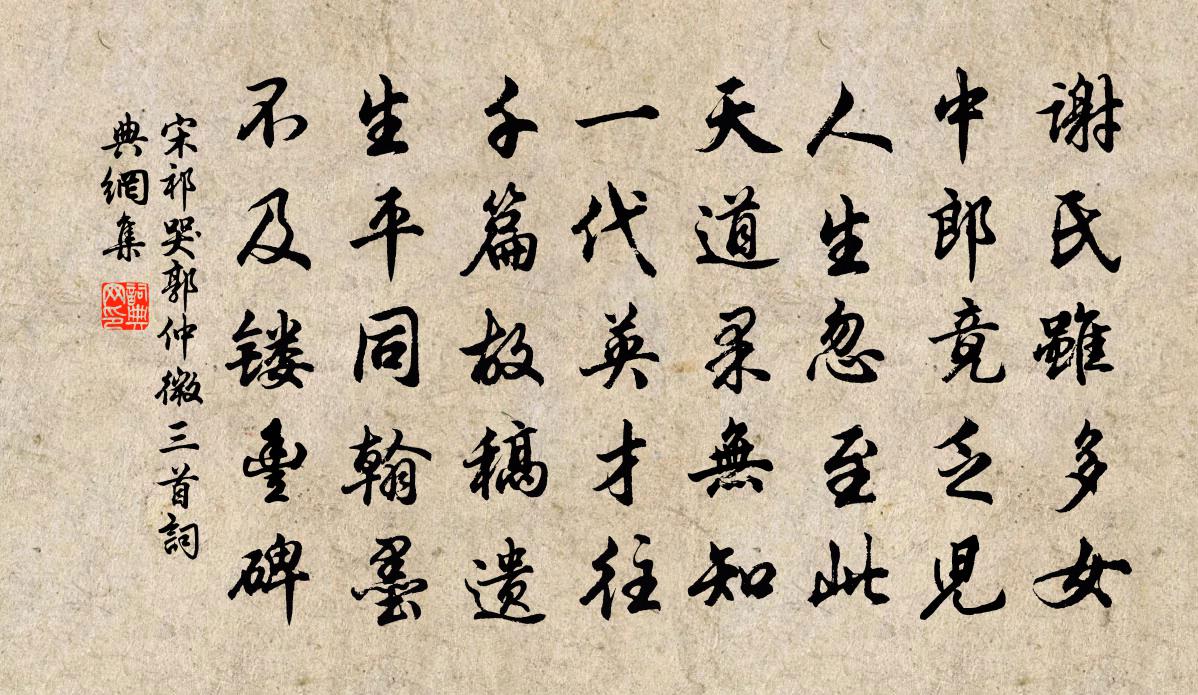 謝氏雖多女
中郎竟乏兒
人生忽至此
天道果無知
一代英才往
千篇故稿遗
生平同翰墨
不及镂豐碑
宋祁哭郭仲微三首詞
典網集
詞典
网印